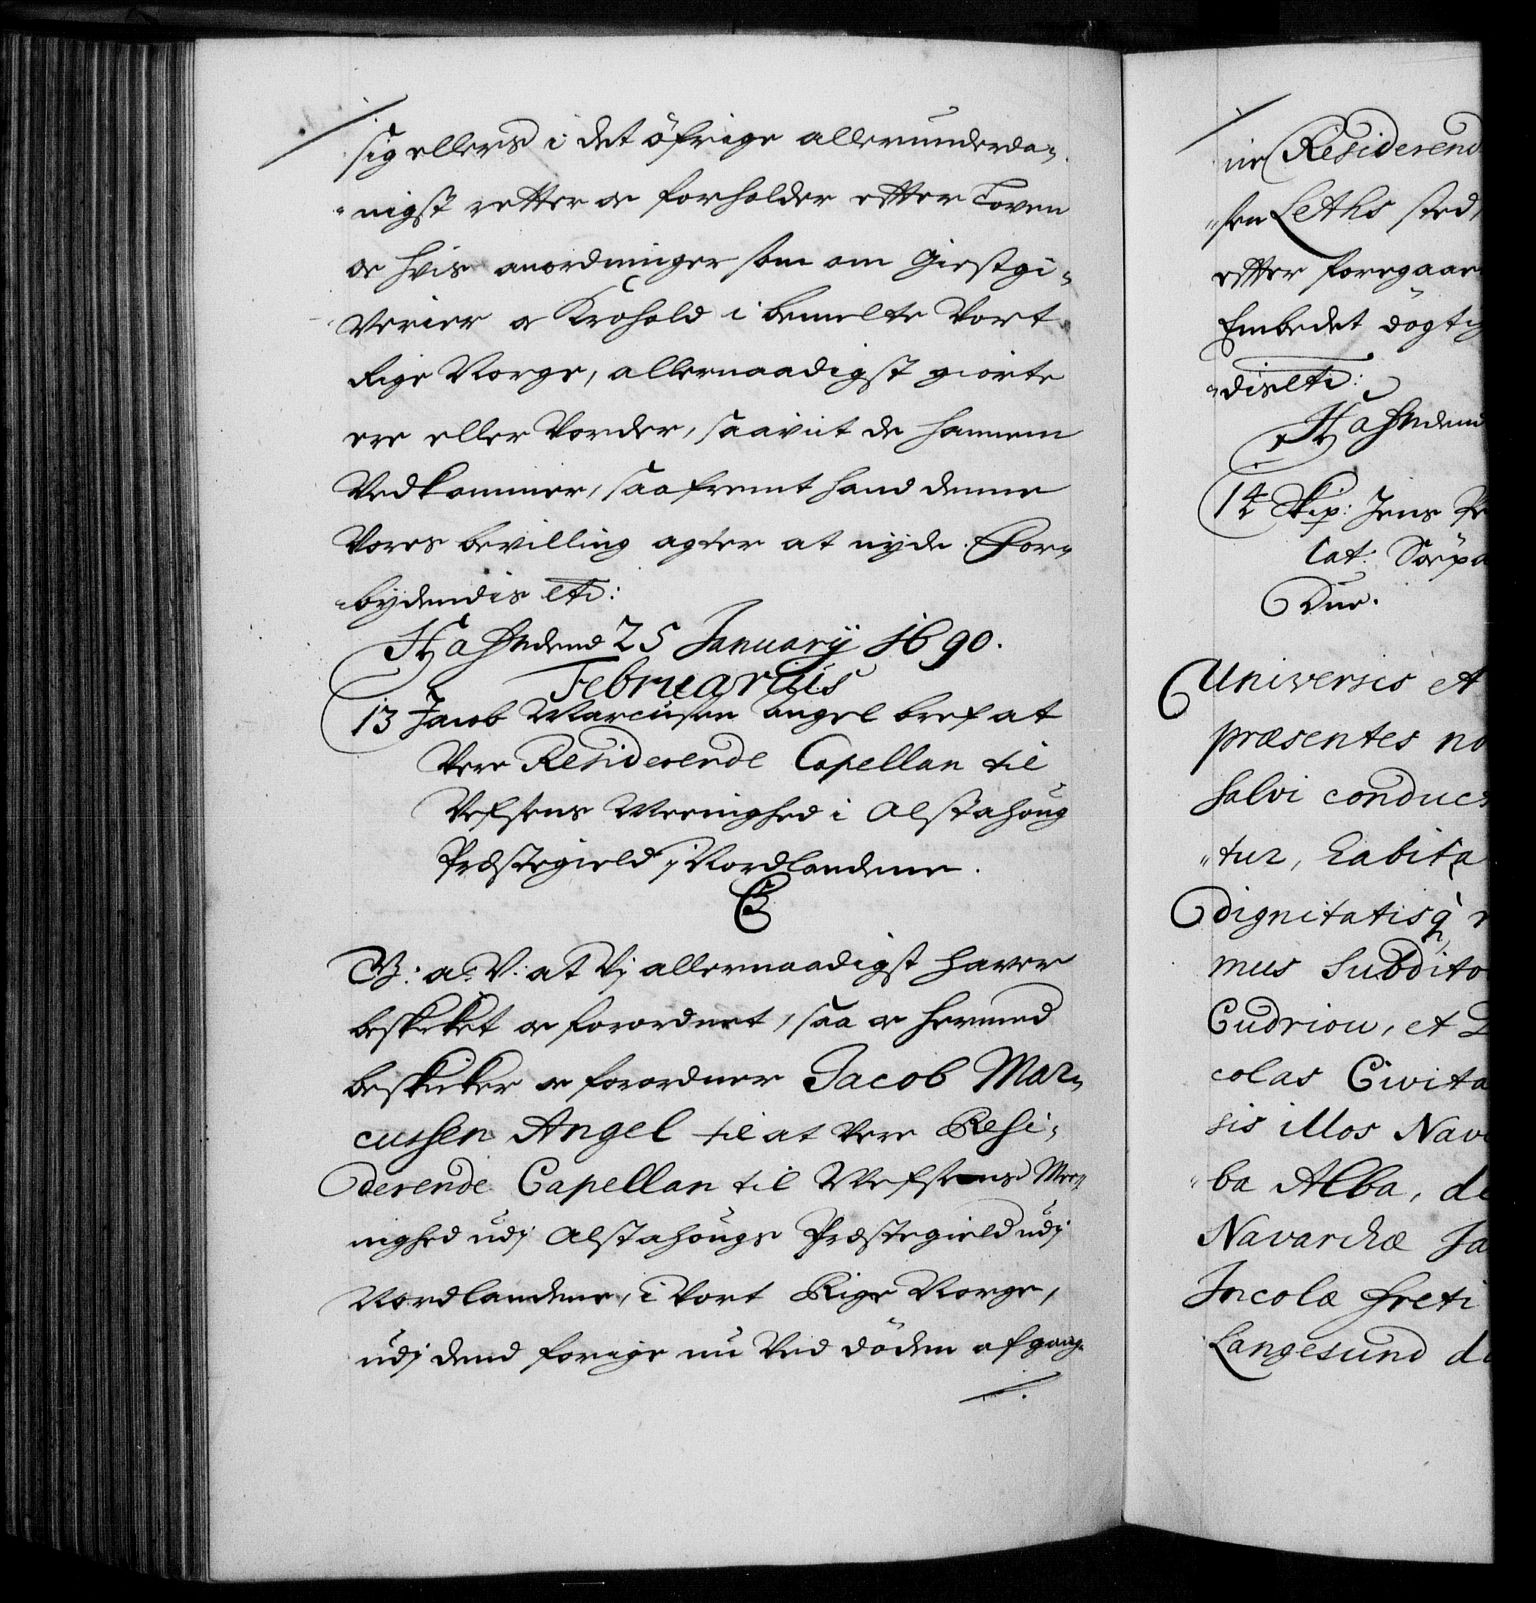 sig ellers i det öfrige allerunderda„
„nigst retter oc forholder efter Loven
oc hvis anordninger som om Giestgi„
Verier oc Krohold i bemelte Vort
Rige Norge, allernaadigst giorte
ere eller Vorder, saavit de hannem
Vedkommer, saafremt hand denne
Vores bevilling agter at nyde. For„
„bydendis etc:
Hafn dend 25 January 1690.
Februarius
13 Jacob Marcusen Angel bref at
Vere Residerende Capellan til
Vefsens Meenighed i Alstahoug
Præstegield, i Nordlandene.
C5
G: a: V: at Vj allernaadigst hafver
beskicket oc forordnet, saa oc hermed
beskicker oc forordner Jacob Mar„
cussen Angel til at Vere Resi„
derende Capellan til Wefsens Mee„
nighed udj Alstahougs Præstegield udj
Nordlandene, i Vort Rige Norge,
udj dend forige nu Ved döden afgang„
./.
ne Residerend
„sen Leths sted,
efter foregaae
Embedet dögtig
„dis etc:
Hafn dend
14 Skip: Jens
Cat: Söepa
Due.
Universis et
præsentes no
salvi conduct
„tur, habita
dignitatisq
mus Subdito
Cudriou, et
colas Civita
sis illos Nav
„ba Alba, de
Navarchæ Ja
Incolæ freti
Langesund de